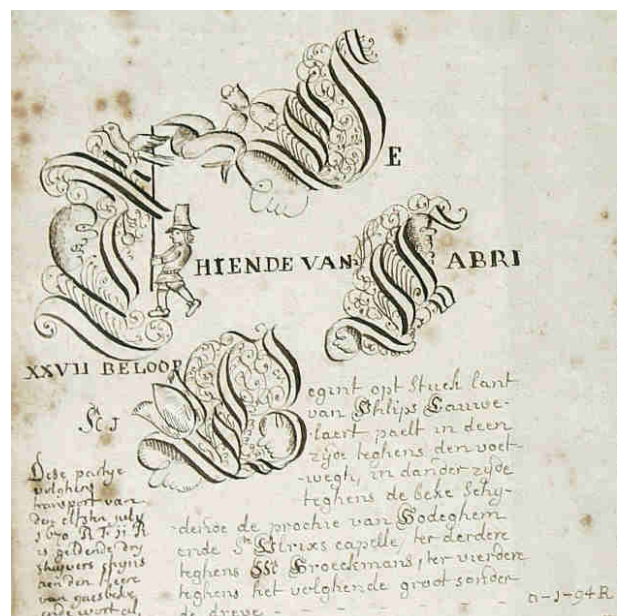 DE
THIENDE VAN FABRI
XXVII BELOOP
Begint opt Stuck lant
van Phlips Cauwe-
laert paelt in deen
zijde teghens den voet-
wegh, in dander zijde
teghens de beke Schy-
dende de prochie van Bodeghem
ende St Ulrixs capelle, ter derdere
teghens Broeckmans, ter vierdere
teghens het velghende groot sonder
de dreve - - - -
St 1
Dese partye
volghens
transport van
den elfsten july
1670
is geldende dry
stuyvers chyns
aen den heere
van gaesbeke
ende wort al
a-1-94R